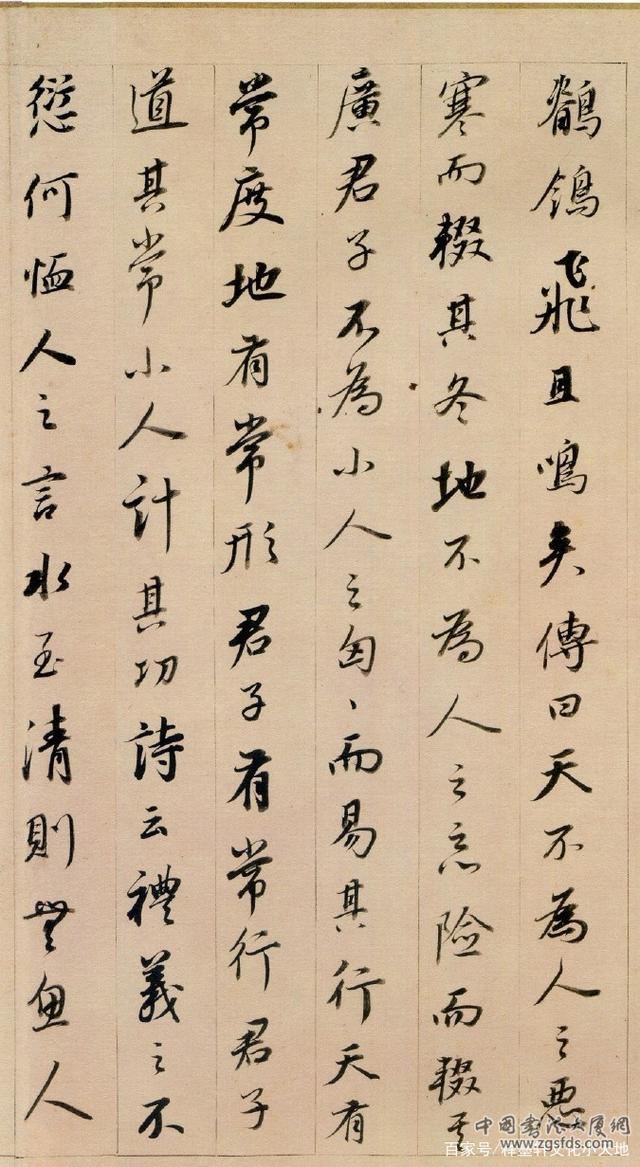 鶺鴒飛且鳴矣傳曰天不為人之惡
寒而輟其冬地不為人之惡險而輟其
廣君子不為小人之匈〻而易其行天有
常度地有常形君子有常行君子
道其常小人計其功詩云禮義之不
愆何恤人之言水至清則無魚人
中國書法大厦網
www.zgsfds.com
百家号/释墨轩文化小天地